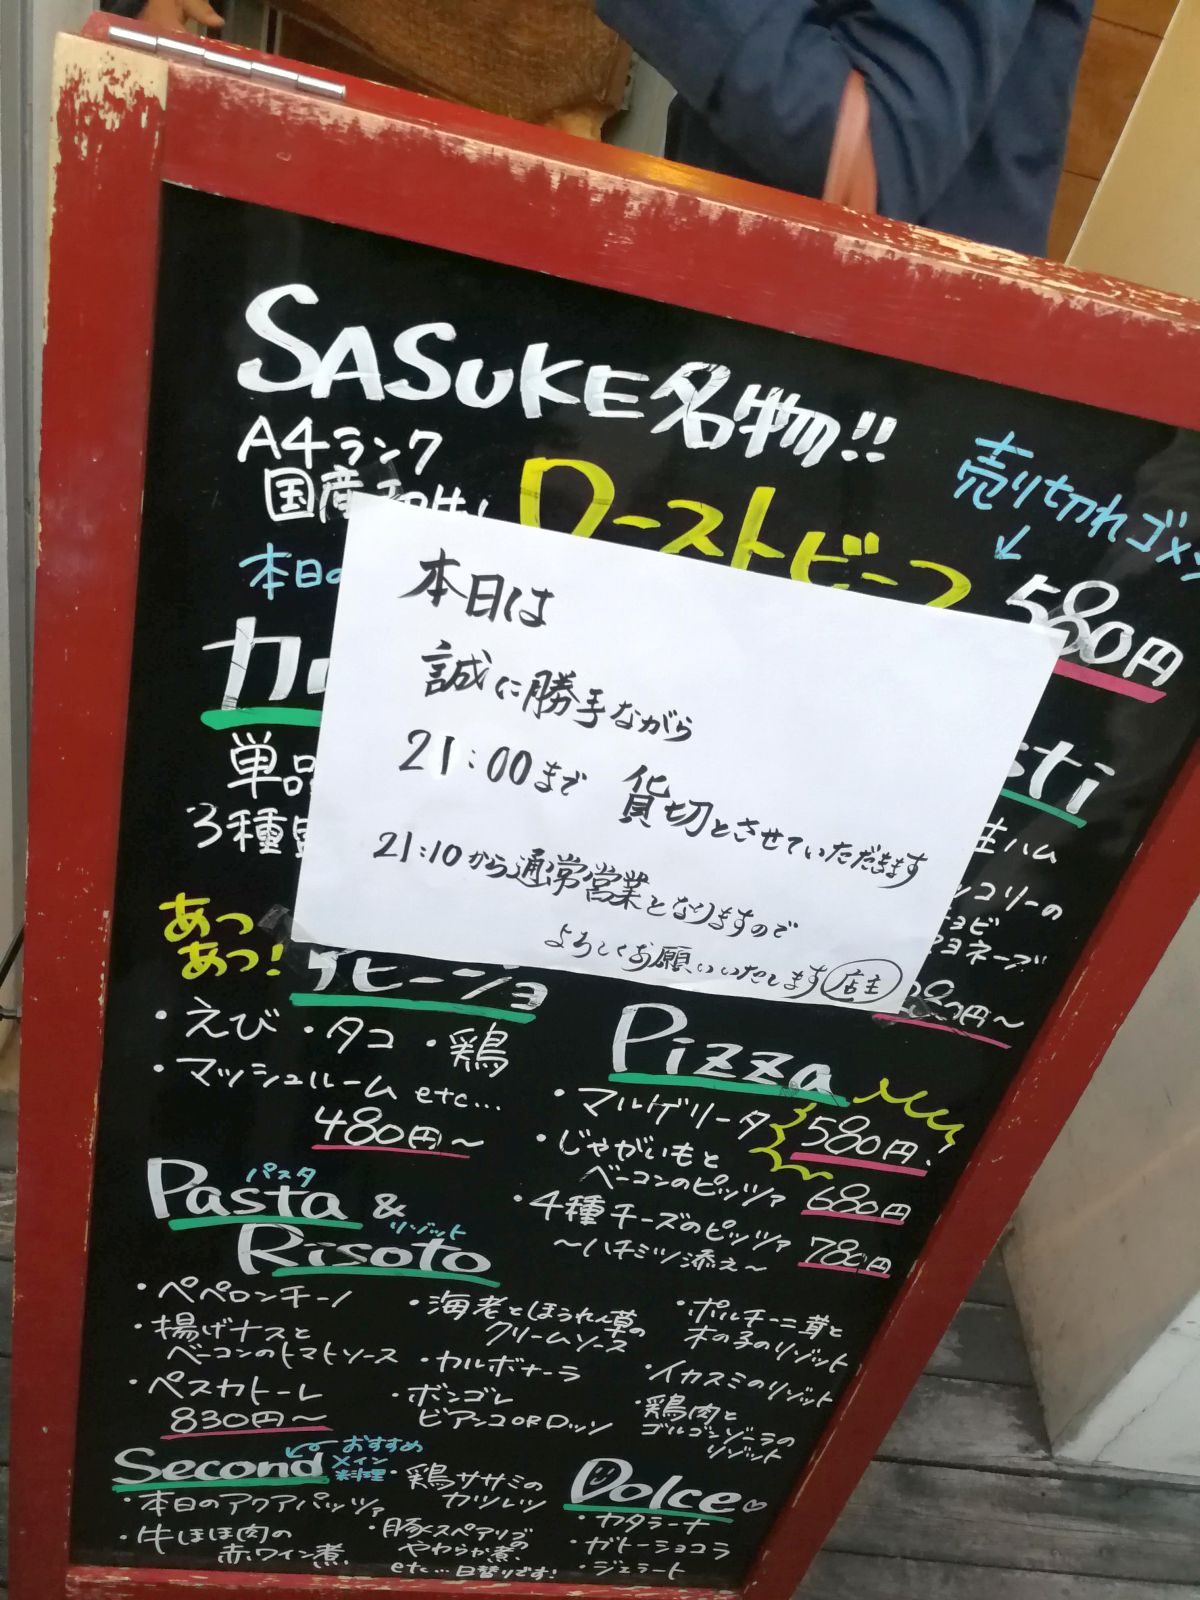 SASUKE名物!!
A4ランク
国産
ローストビーフ
売り切れゴメン
580円
本日の
本日は
誠に勝手ながら
21:00まで 貸切とさせていただきます
21:10から通常営業となりますので
よろしくお願いいたします 店主
カ
単品
3種盛
sti
生ハム
コリーの
チョビ
マヨネーズ
280円～
あつ
あつ!
アヒージョ
・えび ・タコ ・鶏
・マッシュルーム etc...
480円～
Pizza
・マルゲリータ 580円
・じゃがいもと
ベーコンのピッツァ 680円
・4種チーズのピッツァ
～ハチミツ添え～ 780円
パスタ
Pasta &
リゾット
Risoto
・ペペロンチーノ
・揚げナスと
ベーコンのトマトソース
・ペスカトーレ
830円～
・海老とほうれん草の
クリームソース
・カルボナーラ
・ボンゴレ
ビアンコORロッソ
・ポルチーニ茸と
木の子のリゾット
・イカスミのリゾット
・鶏肉と
ゴルゴンゾーラの
リゾット
Second
おすすめ
メイン
料理
・本日のアクアパッツァ
・牛ほほ肉の
赤ワイン煮
・鶏ササミの
カツレツ
・豚スペアリブの
やわらか煮
etc...日替りです!
Dolce
・カタラーナ
・ガトーショコラ
・ジェラート